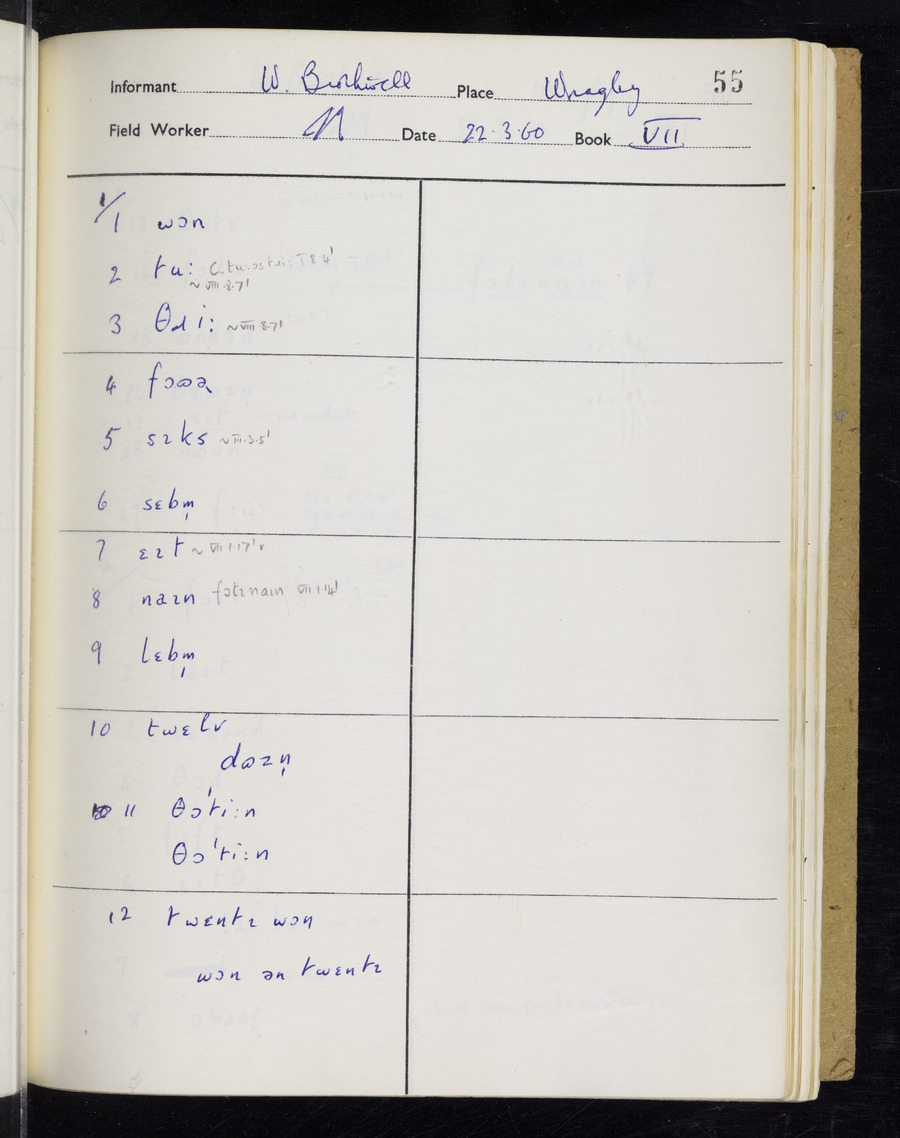 Informant W. Brothwell Place Wragby 55
Field Worker N Date 22·3·60 Book VII
1/1 wɔn
2 tu: C. tu:əstɪi: T 8 4'
~ VIII·8·7'
3 θɹi: ~ VIII·8·7'
4 fɔʊə
5 sɪks ~ VII·3·5'
6 sɛbm̩
7 ɛɪt ~ VII·1·17'v
8 naɪn fɔtɪnaɪn VII·1·14'
9 lɛbm̩
10 twɛlv
dʊzn̩
11 θɔ'ti:n
θɔ'ti:n
12 twɛntɪ wɔn
wɔn ən twɛntɪ